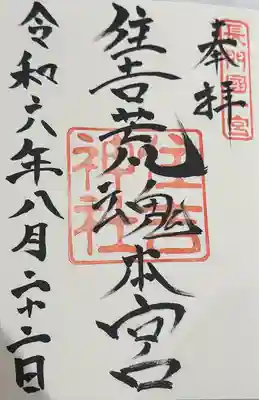 長門國一宮
奉拝
住吉荒魂本宮
住吉神社
令和六年八月二十二日